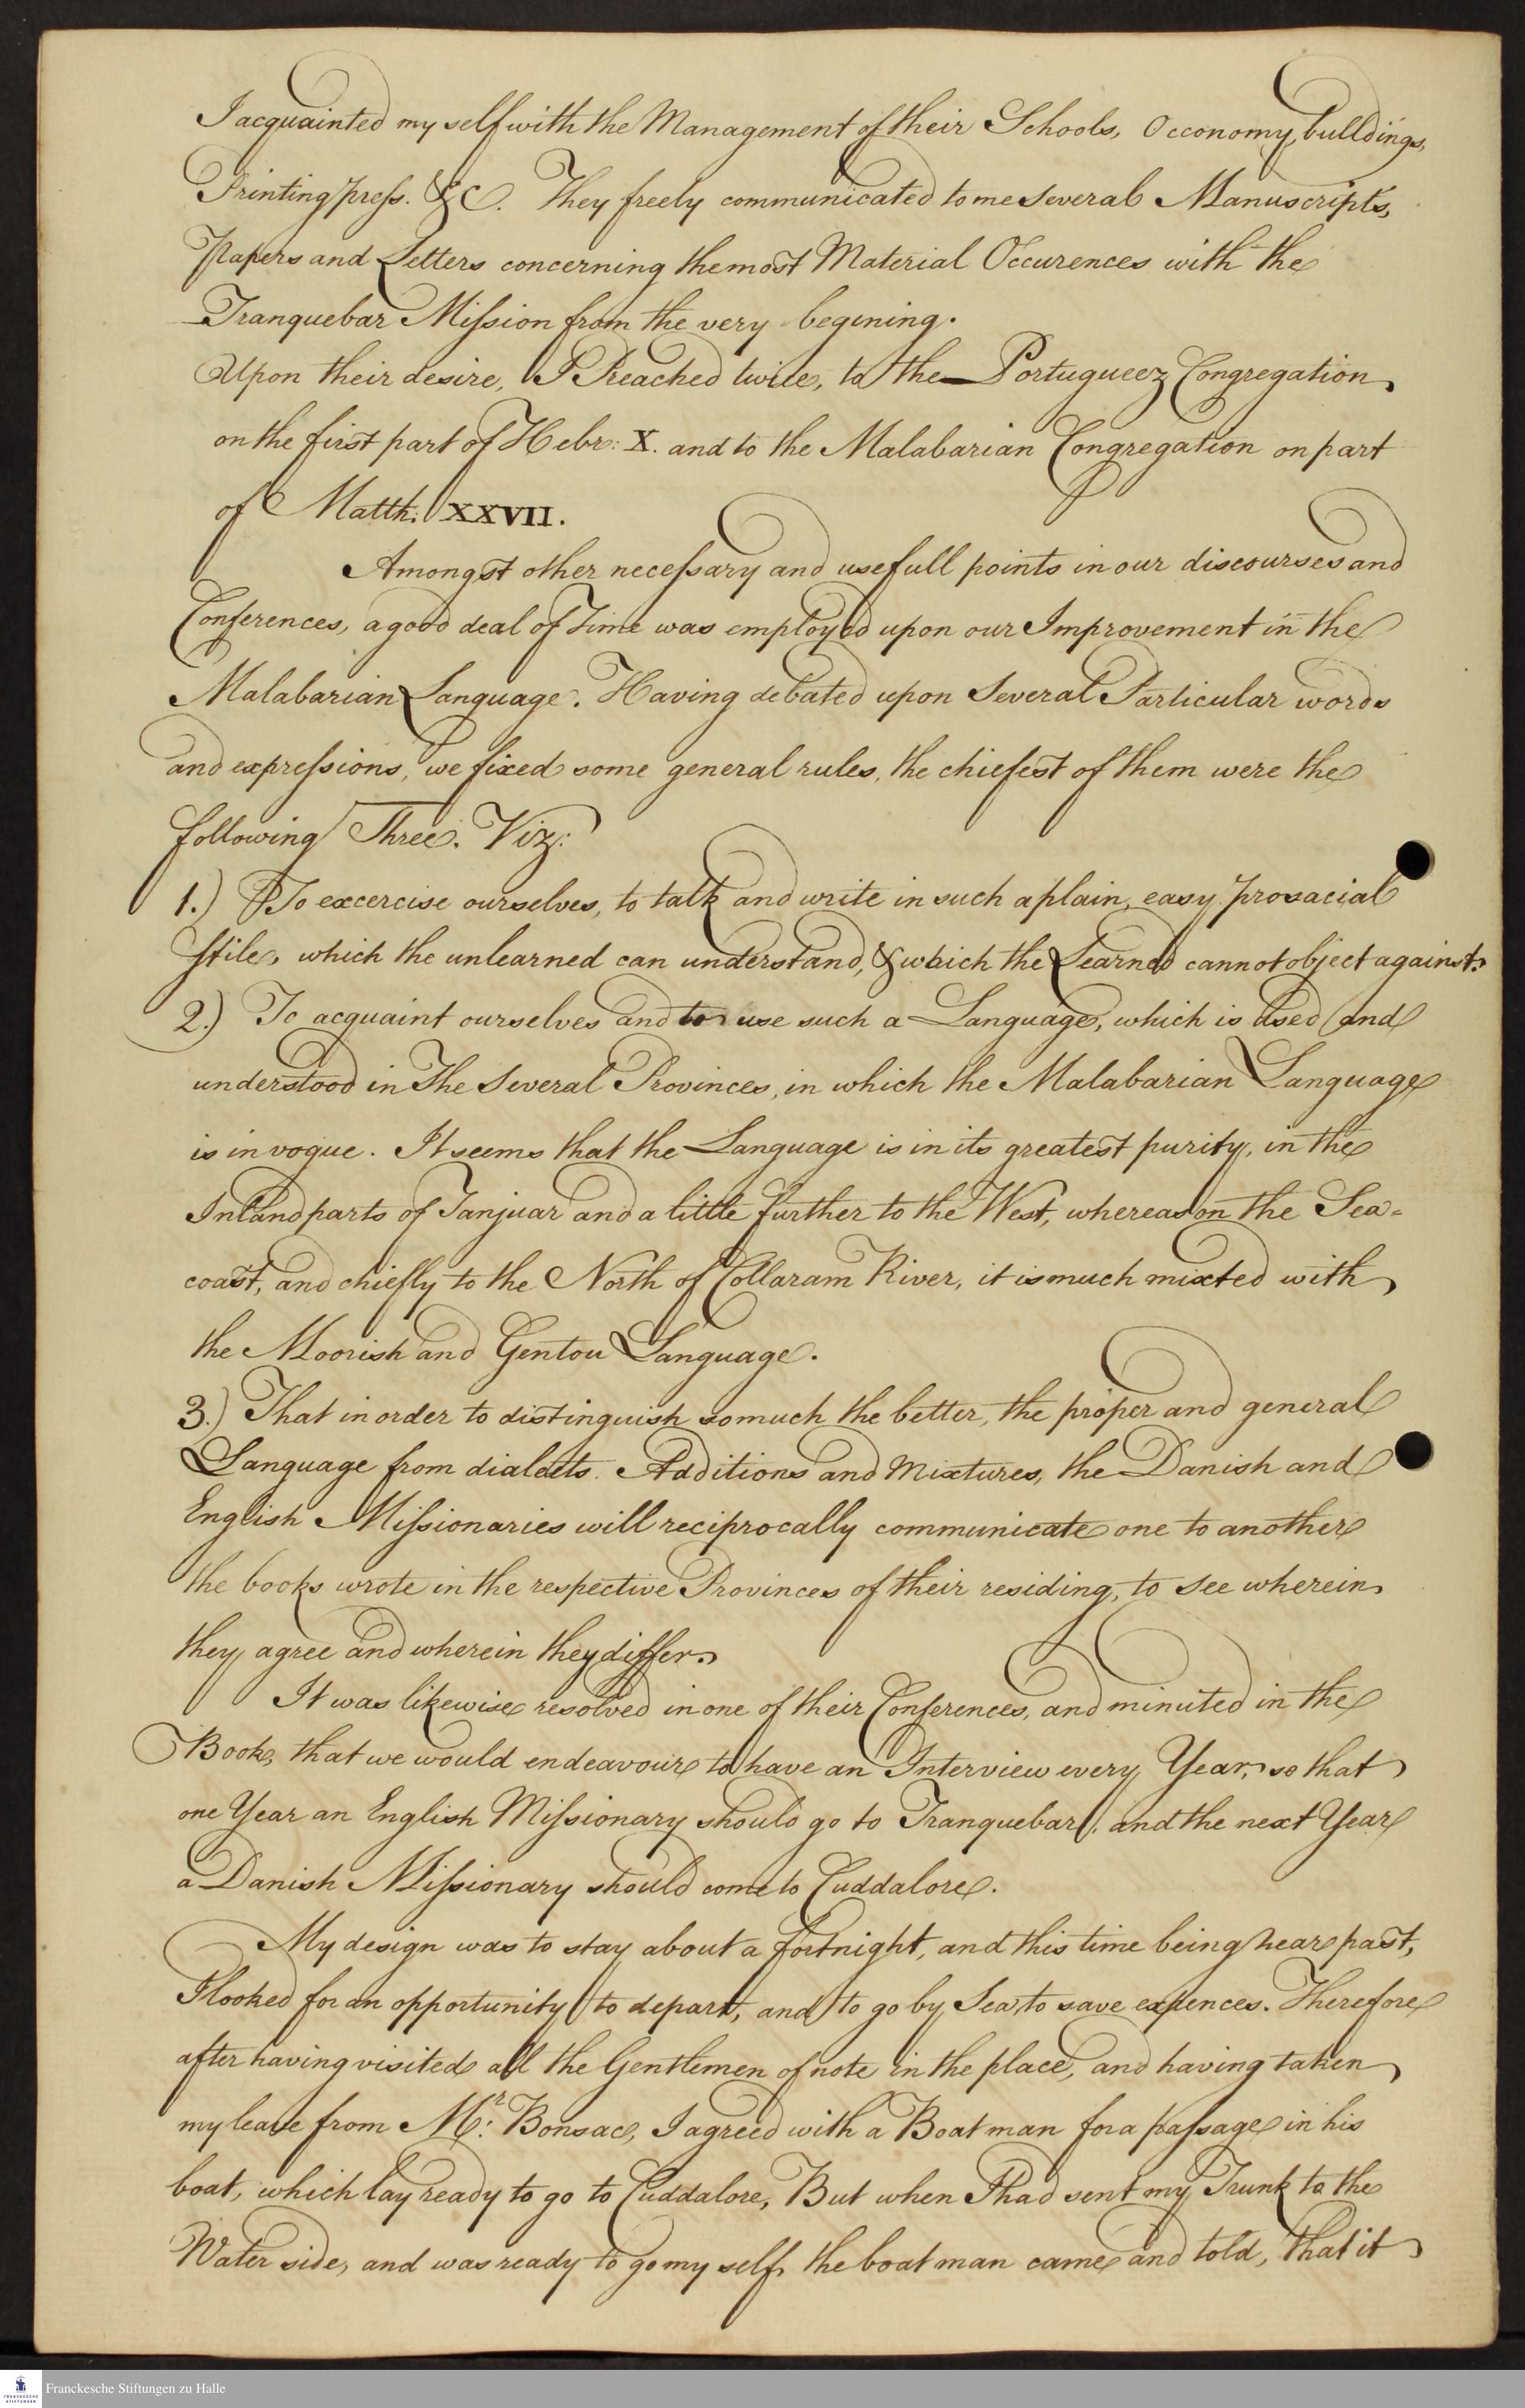 I acquainted my self with the Management of their Schools, Occonomy, buildings,
Printing press. &c. They freely communicated to me Several Manuscripts,
Papers and Letters concerning the most Material Occurences with the
Tranquebar Mission from the very begining.
Upon their desire, I Preached twice, to the Portugueez Congregation
on the first part of Hebr: X. and to the Malabarian Congregation on part
of Matth: XXVII.
Amongst other necessary and usefull points in our discourses and
Conferences, a good deal of Time was employed upon our Improvement in the
Malabarian Language. Having debated upon Several Particular words
and expressions, we fixed some general rules, the chiefest of them were the
following Three. Viz:
1.) To excercise ourselves, to talk and write in such a plain, easy prosacial
Stile, which the unlearned can understand, & which the Learned cannot object against.
2.) To acquaint ourselves and to use such a Language, which is used and
understood in The Several Provinces, in which the Malabarian Language
is in vogue. It seems that the Language is in its greatest purity, in the
Inland parts of Tanjuar and a little further to the West, whereas on the Sea=
coast, and chiefly to the North of Collaram River, it is much mixted with
the Moorish and Gentou Language.
3.) That in order to distinguish so much the better, the proper and general
Language from dialects. Additions and Mixtures, the Danish and
English Missionaries will reciprocally communicate one to another
the books wrote in the respective Provinces of their residing, to see wherein
they agree and wherein they differ.
It was likewise resolved in one of their Conferences, and minuted in the
Book, that we would endeavour to have an Interview every Year, so that
one Year an English Missionary should go to Tranquebar, and the next Year
a Danish Missionary should come to Cuddalore.
My design was to stay about a fortnight, and this time being near past,
I looked for an opportunity to depart, and to go by Sea, to save expences. Therefore
after having visited all the Gentlemen of note in the place, and having taken
my leave from Mr: Bonsac, I agreed with a Boat man for a passage in his
boat, which lay ready to go to Cuddalore, But when I had sent my Trunk to the
Water side, and was ready to go my self, the boat man came and told, that it
Franckesche Stiftungen zu Halle